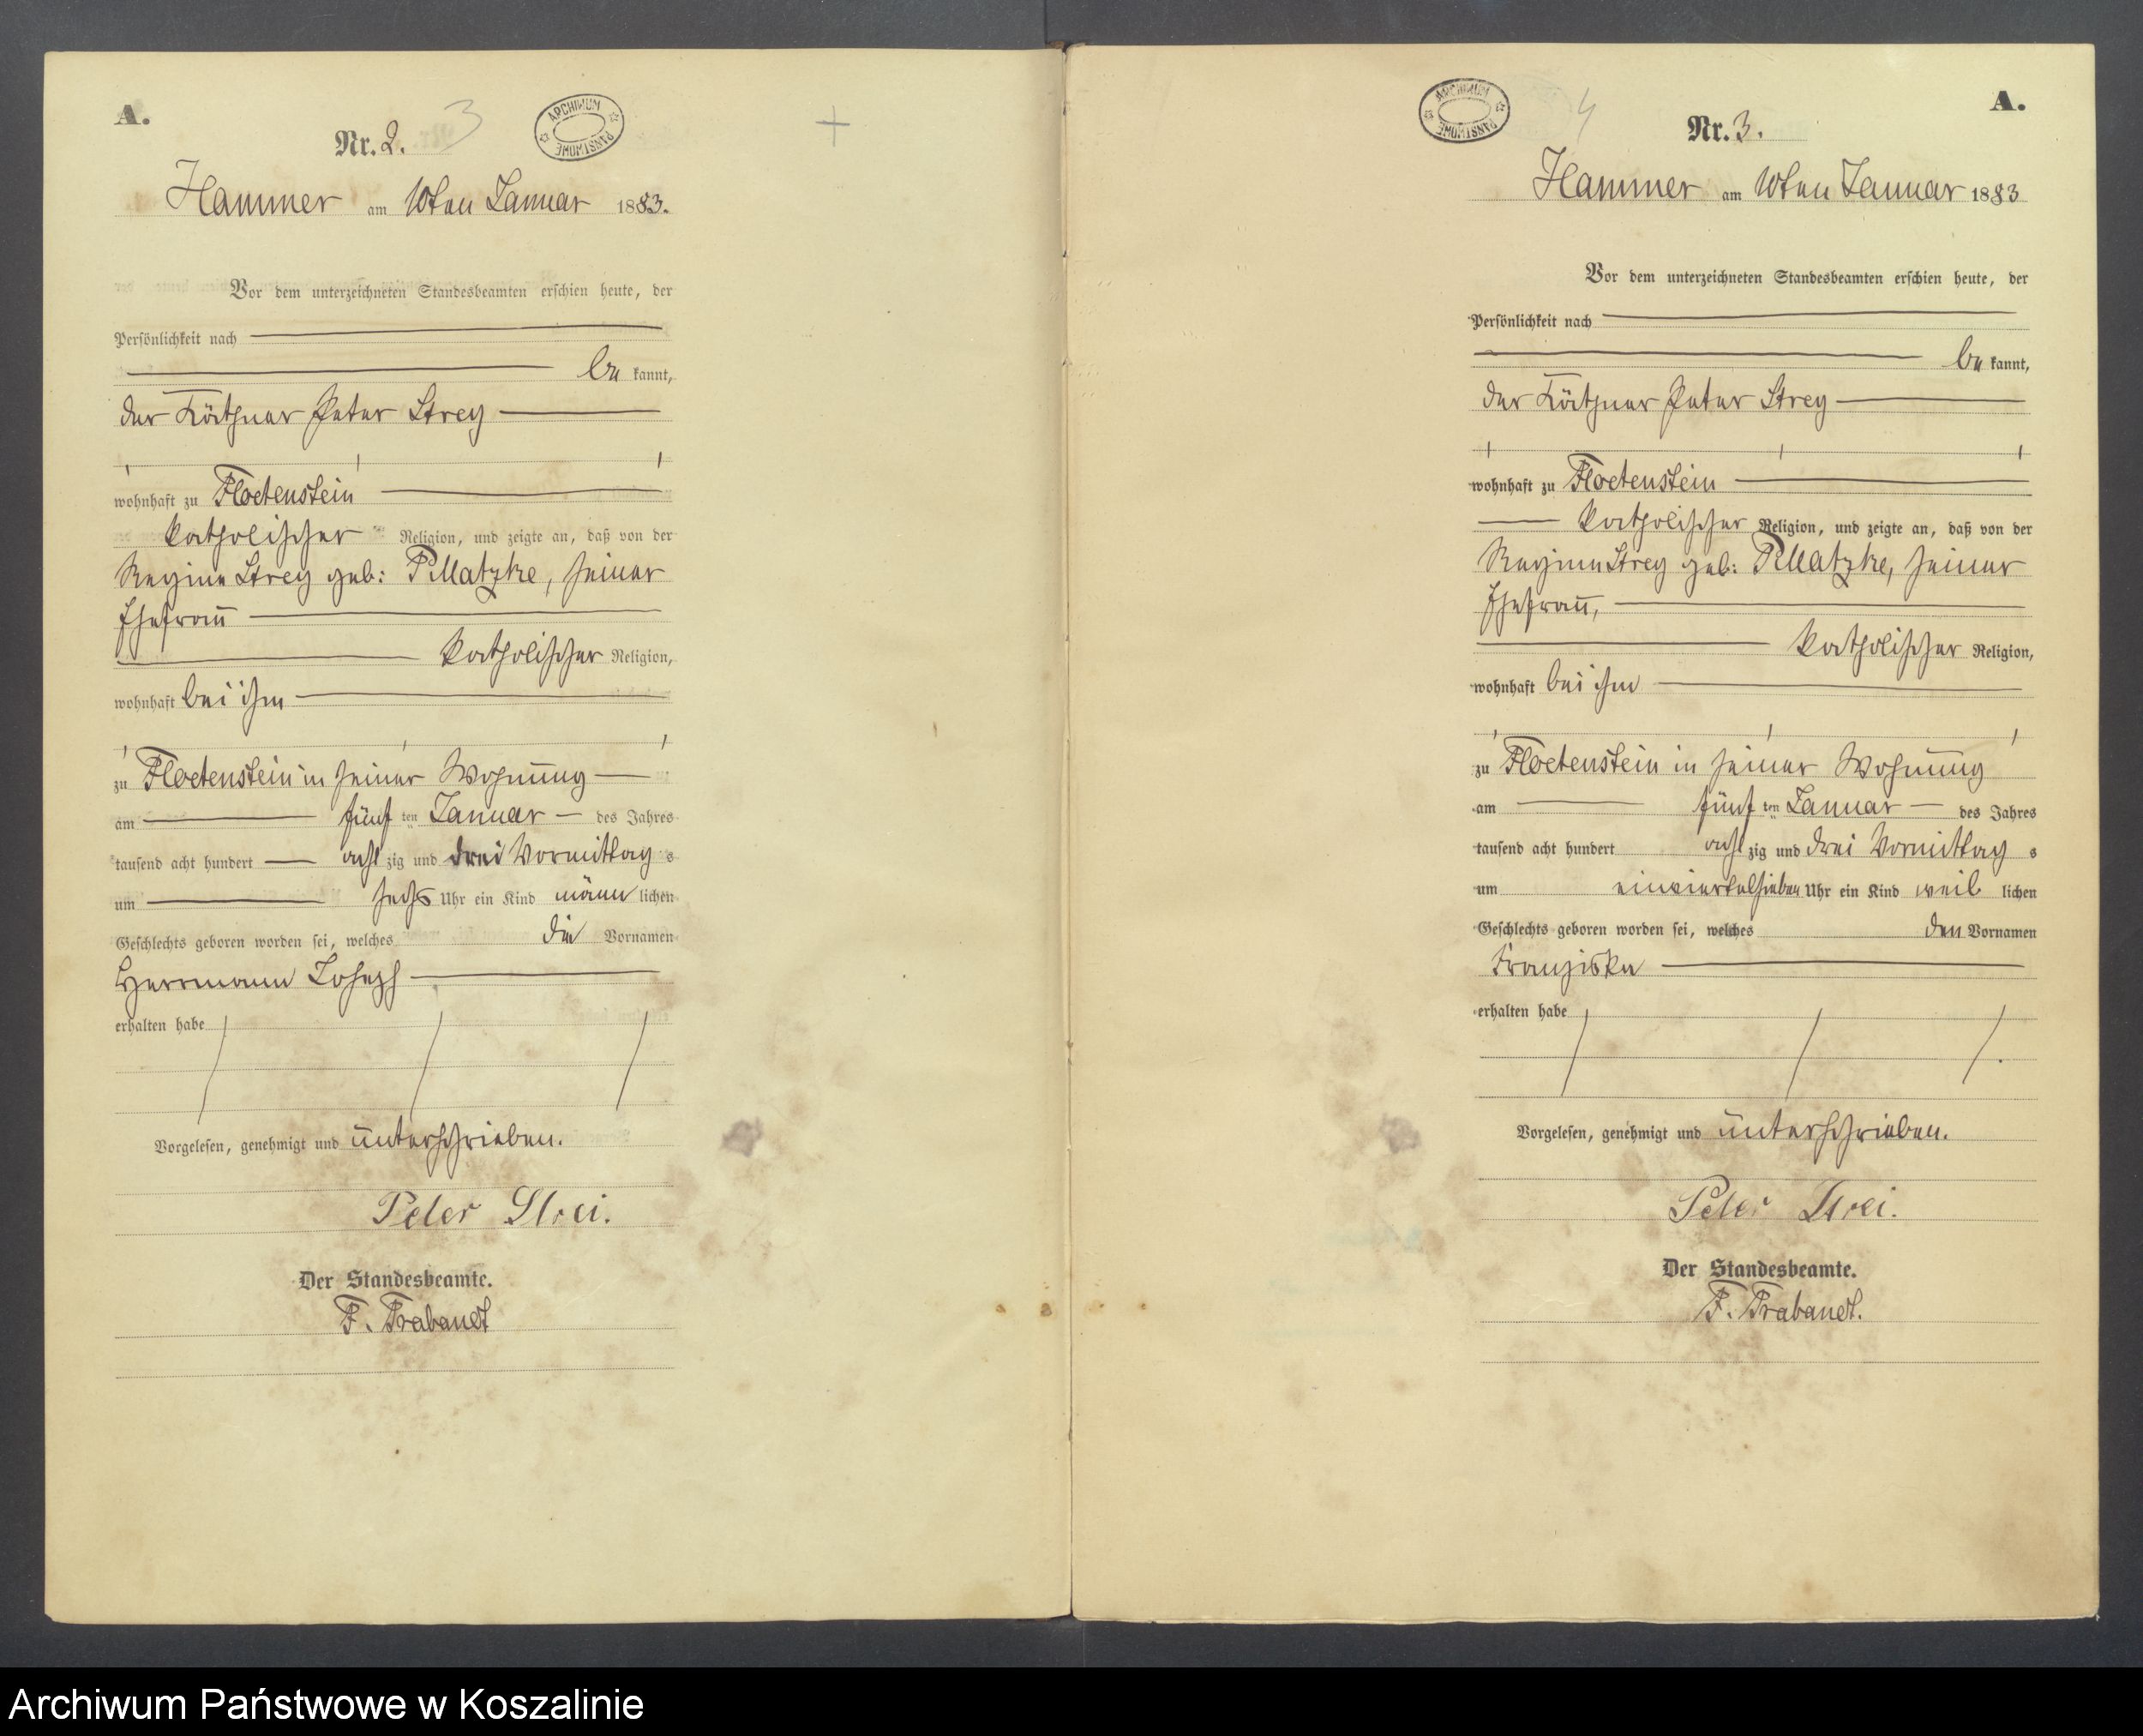 A.
Nr. 2.
3
ARCHIWUM PAŃSTWOWE
Hammer am 10ten Januar 1883.
Vor dem unterzeichneten Standesbeamten erschien heute, der
Persönlichkeit nach
be kannt,
der Käthner Peter Strey
wohnhaft zu Floetenstein
katholischer Religion, und zeigte an, daß von der
Regine Strey geb: Pillatzke, seiner
Ehefrau
katholischer Religion,
wohnhaft bei ihm
zu Floetenstein in seiner Wohnung
am fünf ten Januar des Jahres
tausend acht hundert acht zig und drei Vormittag s
um sechs Uhr ein Kind männ lichen
Geschlechts geboren worden sei, welches die Vornamen
Herrmann Joseph
erhalten habe
Vorgelesen, genehmigt und unterschrieben.
Peter Strei.
Der Standesbeamte.
F. Trabandt
A.
Nr. 3.
4
ARCHIWUM PAŃSTWOWE
Hammer am 10ten Januar 1883
Vor dem unterzeichneten Standesbeamten erschien heute, der
Persönlichkeit nach
be kannt,
der Käthner Peter Strey
wohnhaft zu Floetenstein
katholischer Religion, und zeigte an, daß von der
Regine Strey geb: Pillatzke, seiner
Ehefrau,
katholischer Religion,
wohnhaft bei ihm
zu Floetenstein in seiner Wohnung
am fünf ten Januar des Jahres
tausend acht hundert acht zig und drei Vormittag s
um einviertelsieben Uhr ein Kind weib lichen
Geschlechts geboren worden sei, welches den Vornamen
Franziska
erhalten habe
Vorgelesen, genehmigt und unterschrieben.
Peter Strei.
Der Standesbeamte.
F. Trabandt.
Archiwum Państwowe w Koszalinie